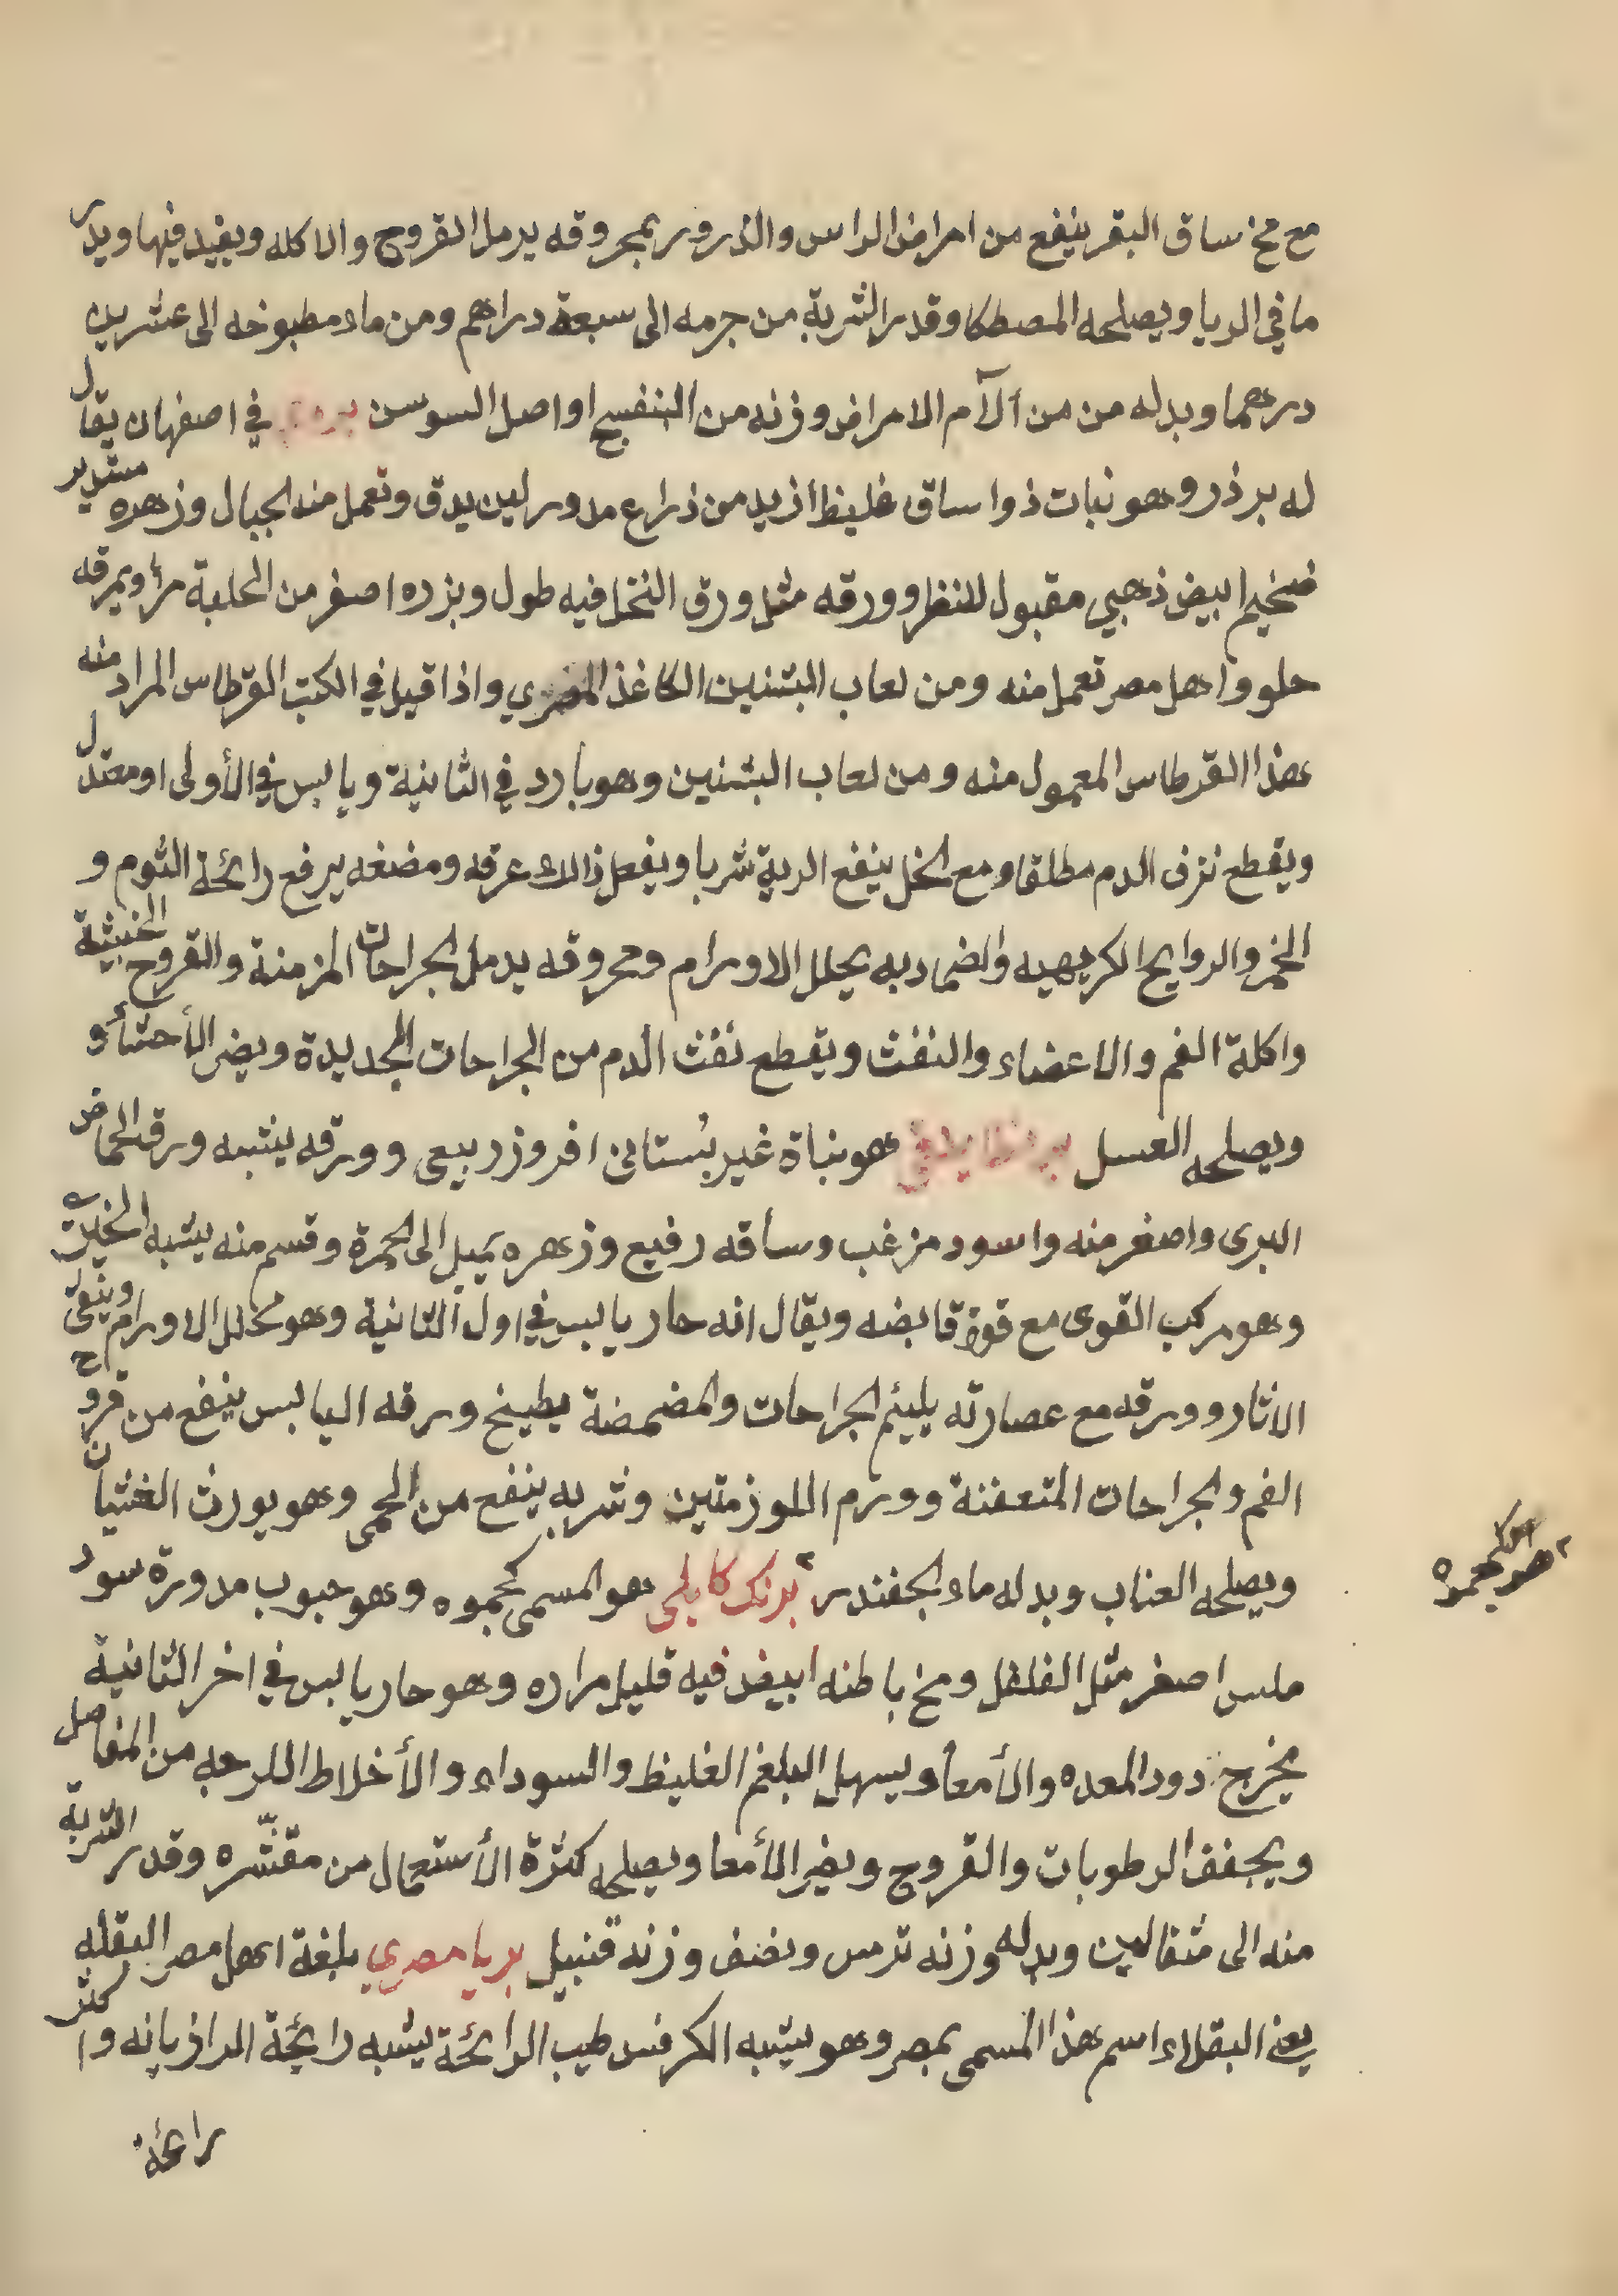 مع مخ ساق البقر ينفع من امراض الراس والذرور بمحروقه يدمل القروح والاكله ويفيد فيها ويدر
ما في الريا ويصلحه المصطكا وقدر الشربة من جرمه الى سبعة دراهم ومن ماء مطبوخه الى عشرين
درهما وبدله من من ألآم الامراض وزنه من البنفسج او اصل السوسن في اصفهان يقال
له برذر وهو نبات ذوا ساق غليظ ازيد من ذراع مدور لين يدق وتعمل منه الحبال وزهره مستدير
ضخيم ابيض ذهبي مقبول للنظر وورقه مثل ورق النخل فيه طول وبزره اصغر من الحلبة مرا ويمرقه
حلو واهل مصر تعمل منه ومن لعاب البشنين الكاغذ المصري واذا قيل في الكتب القرطاس المراد منه
هذا القرطاس المعمول منه ومن لعاب البشنين وهو بارد في الثانية ويابس في الأولى او معتدل
ويقطع نزف الدم مطلقا ومع الخل ينفع الرية شربا ويفعل ذالك عرقه ومضغه يرفع رائحة الثوم و
الخمر والروايح الكريهيه والضماد به يحلل الاورام ومحروقه يدمل الجراحات المزمنة والقروح الخبيثة
واكلة الفم والاعضاء والنفث ويقطع نفث الدم من الجراحات الجديدة ويضر الأحشاء و
ويصلحه العسل هو نباة غير بُستانى افروز ربيعى وورقه ينشبه ورق الحماض
البرى واصغر منه واسود مزغب وساقه رفيع وزهره يَميل الى الحمرة وقسم منه يشبه
وهو مركب القوى مع قوة قابضه ويقال انه حار يابس في اول الثانية وهو محلل الاورام وينقى
الاثار وورقه مع عصارته يليئم الجراحات والمضمضة بطبيخ ورقه اليابس ينفع من قروح
الفم والجراحات المتعفنة وورم اللوزمتين وشربه ينفع من الحمى وهو يورث الغثيان
ويصلحه العناب وبدله ماء الجفندر ٢ برنك كابلى هو المسمى بحموه وهو حبوب مدورة سود
ملس اصغر مثل الفلفل ومخ باطنه ابيض فيه قليل مراره وهو حار يابس في اخر الثانية
يخرج دود المعده والأمعاء ويسهل البلغم الغليظ والسوداء والأخلاط اللزجه من المفاصل
ويجفف الرطوبات والقروح ويضر الأمعا ويصلحه كثرة الأستعمال من مقشّره وقدر الشربة
منه الى مثقالين وبدله وزنه ترمس ونصف وزنه قنبيل بريا مصري بلغة اهل مصر البقله
يعني البقلاء اسم هذا المسمى بمصر وهو يشبه الكرفس طيب الرائحة يشبه رائحة الرازيانه واكثر
رائحة
٢ هو